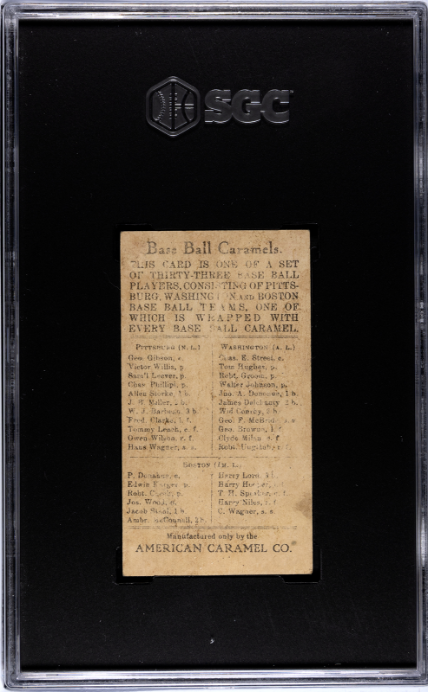 SGC
Base Ball Caramels.
THIS CARD IS ONE OF A SET
OF THIRTY-THREE BASE BALL
PLAYERS, CONSISTING OF PITTS-
BURG, WASHINGTON AND BOSTON
BASE BALL TEAMS, ONE OF
WHICH IS WRAPPED WITH
EVERY BASE BALL CARAMEL.
PITTSBURG (N. L.)
Geo. Gibson, c.
Victor Willis, p.
Sam'l Leever, p.
Chas. Phillipi, p.
Allen Storke, 1 b
J. B. Miller, 2 b
W. J. Barbeau, 3 b.
Fred. Clarke, l. f.
Tommy Leach, c. f.
Owen Wilson, r. f
Hans Wagner, s. s.
WASHINGTON (A. L.)
Chas. E. Street, c.
Tom Hughes, p.
Robt. Groom, p.
Walter Johnson, p.
Jno. A. Donovan, 1 b.
James Delehanty 2 b.
Wid Conroy, 3 b.
Geo. F. McBride, s. s.
Geo. Browne, l. f
Clyde Milan, c. f
BOSTON (A. L.)
P. Donahue, c.
Edwin Karger, p.
Robt. p.
Joe. Wood, p.
Jacob Stahl, 1 b
Ambr. McConnell, 2 b
Harry Lord, 3 b
Harry Hooper, l. f
T. H. Speaker, c. f.
Harry Niles, r. f
C. Wagner, s. s.
Manufactured only by the
AMERICAN CARAMEL CO.